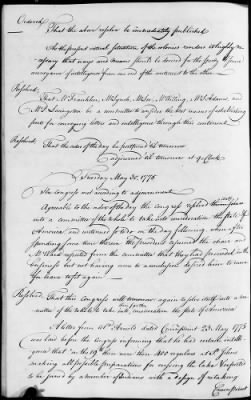 Ordered,
That the above resolve be immediately published
As the present critical situation of the colonies renders it highly ne-
cessary that ways and means should be devised for the speedy & secure
conveyance of intelligence from one end of the continent to the other
Resolved,
That Mr Franklin, Mr Lynch, Mr Lee, Mr Willing, Mr S Adams, and
Mr P Livingston be a committee to consider the best means of establishing
posts for conveying letters and intelligence through this continent
Resolved,
That the order of the day be postponed till tomorrow
Adjourned till tomorrow at 9 oClock
Saturday May 30. 1775
The Congress met according to adjournment
Agreeable to the order of the day the Congress resolved themselves
into a committee of the whole to take into consideration the state of
America and
spending some time therein the president resumed the chair and
Mr Ward reported from the committee that they had proceeded in the
business but not having come to a conclusion desired him to move
for leave to sit again
Resolved,
That this Congress will tomorrow again resolve itself into a com-
mittee of the whole to take into farther consideration the state of America
A letter from Col Arnold dated Crown point 23. May 1775
was laid before the Congress informing that he had certain intelli-
gence that on the 19th there were then 400 regulars at St Johns
making all possible preparation for crossing the lake & expected
to be joined by a number of Indians with a design of retaking
Crown point